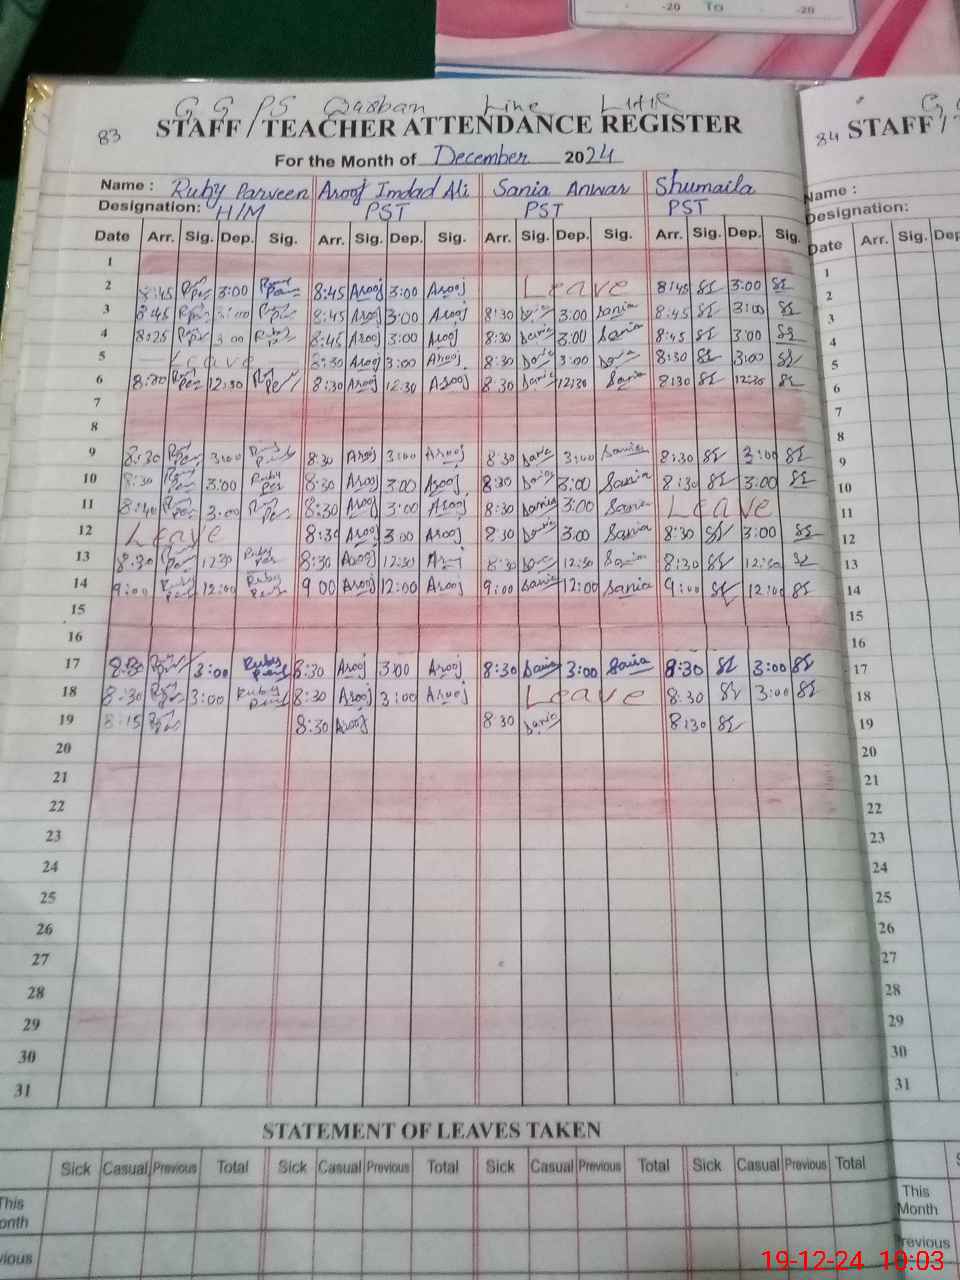 -20 To -20
G G P S Qurban Line LHR
83 STAFF / TEACHER ATTENDANCE REGISTER
For the Month of December 2024
Name : Ruby Parveen Arooj Imdad Ali Sania Anwar Shumaila
Designation: H/M PST PST PST
Date Arr. Sig. Dep. Sig. Arr. Sig. Dep. Sig. Arr. Sig. Dep. Sig. Arr. Sig. Dep. Sig.
1
2 8:45 3:00 8:45 Arooj 3:00 Arooj Leave 8:45 3:00
3 8:45 3:00 8:45 Arooj 3:00 Arooj 8:30 3:00 Sania 8:45 3:00
4 8:25 3:00 Ruby 8:45 Arooj 3:00 Arooj 8:30 Sania 3:00 Sania 8:45 3:00
5 Leave 8:30 Arooj 3:00 Arooj 8:30 3:00 8:30 3:00
6 8:30 12:30 8:30 Arooj 12:30 Arooj 8:30 Sania 12:30 Sania 8:30 12:30
7
8
9 8:30 3:00 8:30 Arooj 3:00 Arooj 8:30 Sania 3:00 Sania 8:30 3:00
10 8:30 3:00 Ruby 8:30 Arooj 3:00 Arooj 8:30 3:00 Sania 8:30 3:00
11 8:40 3:00 8:30 Arooj 3:00 Arooj 8:30 Sania 3:00 Sania Leave
12 Leave 8:30 Arooj 3:00 Arooj 8:30 3:00 Sania 8:30 3:00
13 8:30 12:30 Ruby 8:30 Arooj 12:30 8:30 12:30 Sania 8:30 12:30
14 9:00 Ruby 12:00 Ruby 9:00 Arooj 12:00 Arooj 9:00 Sania 12:00 Sania 9:00 12:00
15
16
17 8:30 3:00 Ruby 8:30 Arooj 3:00 Arooj 8:30 Sania 3:00 Sania 8:30 3:00
18 8:30 3:00 Ruby 8:30 Arooj 3:00 Arooj Leave 8:30 3:00
19 8:15 8:30 Arooj 8:30 Sania 8:30
20
21
22
23
24
25
26
27
28
29
30
31
STATEMENT OF LEAVES TAKEN
Sick Casual Previous Total Sick Casual Previous Total Sick Casual Previous Total Sick Casual Previous Total
This
onth
vious
84 STAFF /
Name :
Designation:
Date Arr. Sig. Dep
1
2
3
4
5
6
7
8
9
10
11
12
13
14
15
16
17
18
19
20
21
22
23
24
25
26
27
28
29
30
31
This
Month
Previous
19-12-24 10:03